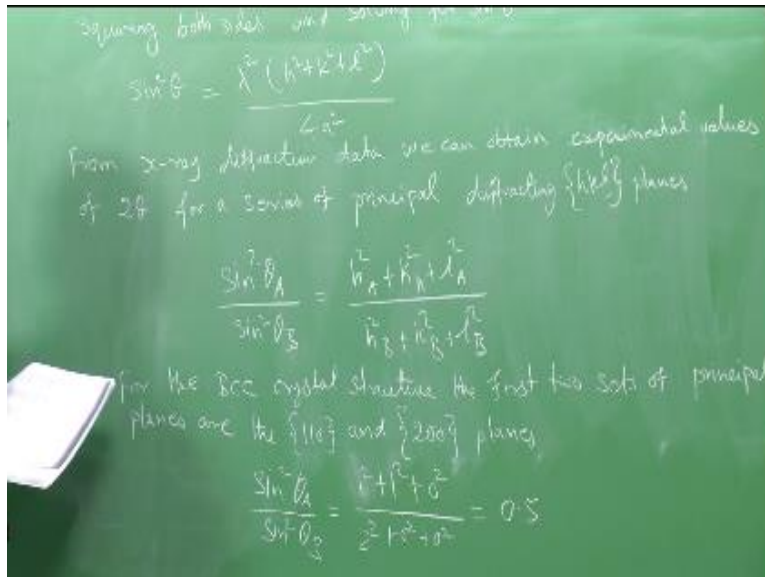 squaring both sides and solving for sin²θ
sin²θ = λ² (h²+k²+l²) / 4a²
From x-ray diffraction data we can obtain experimental values
of 2θ for a series of principal diffracting {hkl} planes
sin²θ_A / sin²θ_B = h²_A + k²_A + l²_A / h²_B + k²_B + l²_B
For the BCC crystal structure the first two sets of principal
planes are the {110} and {200} planes
sin²θ_A / sin²θ_B = 1²+1²+0² / 2²+0²+0² = 0.5